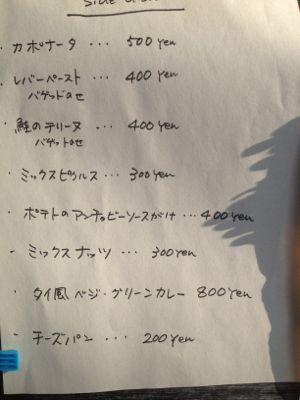 Side dish
・カポナータ ・・・ 500 yen
・レバーペースト ・・・ 400 yen
バゲットのせ
・鮭のテリーヌ ・・・ 400 yen
バゲットのせ
・ミックスピクルス ・・・ 300 yen
・ポテトのアンチョビーソースがけ ・・・ 400 yen
- ミックスナッツ ・・・ 300 yen
・タイ風 ベジ・グリーンカレー 800 yen
・チーズパン ・・・ 200 yen